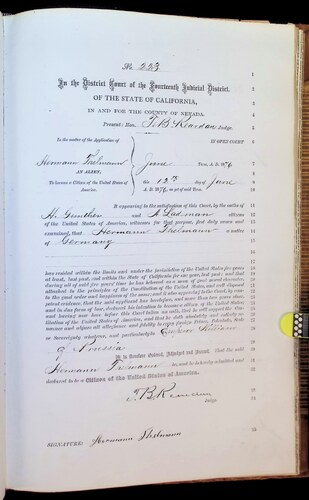 No. 223
In the District Court of the Fourteenth Judicial District.
OF THE STATE OF CALIFORNIA,
IN AND FOR THE COUNTY OF NEVADA.
Present: Hon. T. B. Reardan Judge.
In the matter of the Application of
IN OPEN COURT
Hermann Thelmann
AN ALIEN,
To become a Citizen of the United States of America.
June Term, A. D. 1876
this 12th day of June
A. D. 1876, as yet of said Term.
It appearing to the satisfaction of this Court, by the oaths of
H. Gunther and A. Ludman citizens
of the United States of America, witnesses for that purpose, first duly sworn and
examined, that Hermann Thelmann a native
of Germany
has resided within the limits and under the jurisdiction of the United States five years
at least, last past, and within the State of California for one year last past; and that
during all of said five years' time he has behaved as a man of good moral character,
attached to the principles of the Constitution of the United States, and well disposed
to the good order and happiness of the same; and it also appearing to the Court, by competent
evidence, that the said applicant has heretofore, and more than two years since,
and in due form of law, declared his intention to become a citizen of the United States
and having now here before this Court taken an oath that he will support the Constitution
of the United States of America, and that he doth absolutely and entirely renounce
and abjure all allegiance and fidelity to every foreign Prince, Potentate, State
or Sovereignty whatever, and particularly to Emperor William
of Prussia
It is therefore Ordered, Adjudged and Decreed, That the said
Hermann Thelmann be, and he is hereby admitted and
declared to be a Citizen of the United States of America.
T. B. Reardan
Judge.
SIGNATURE: Hermann Thelmann